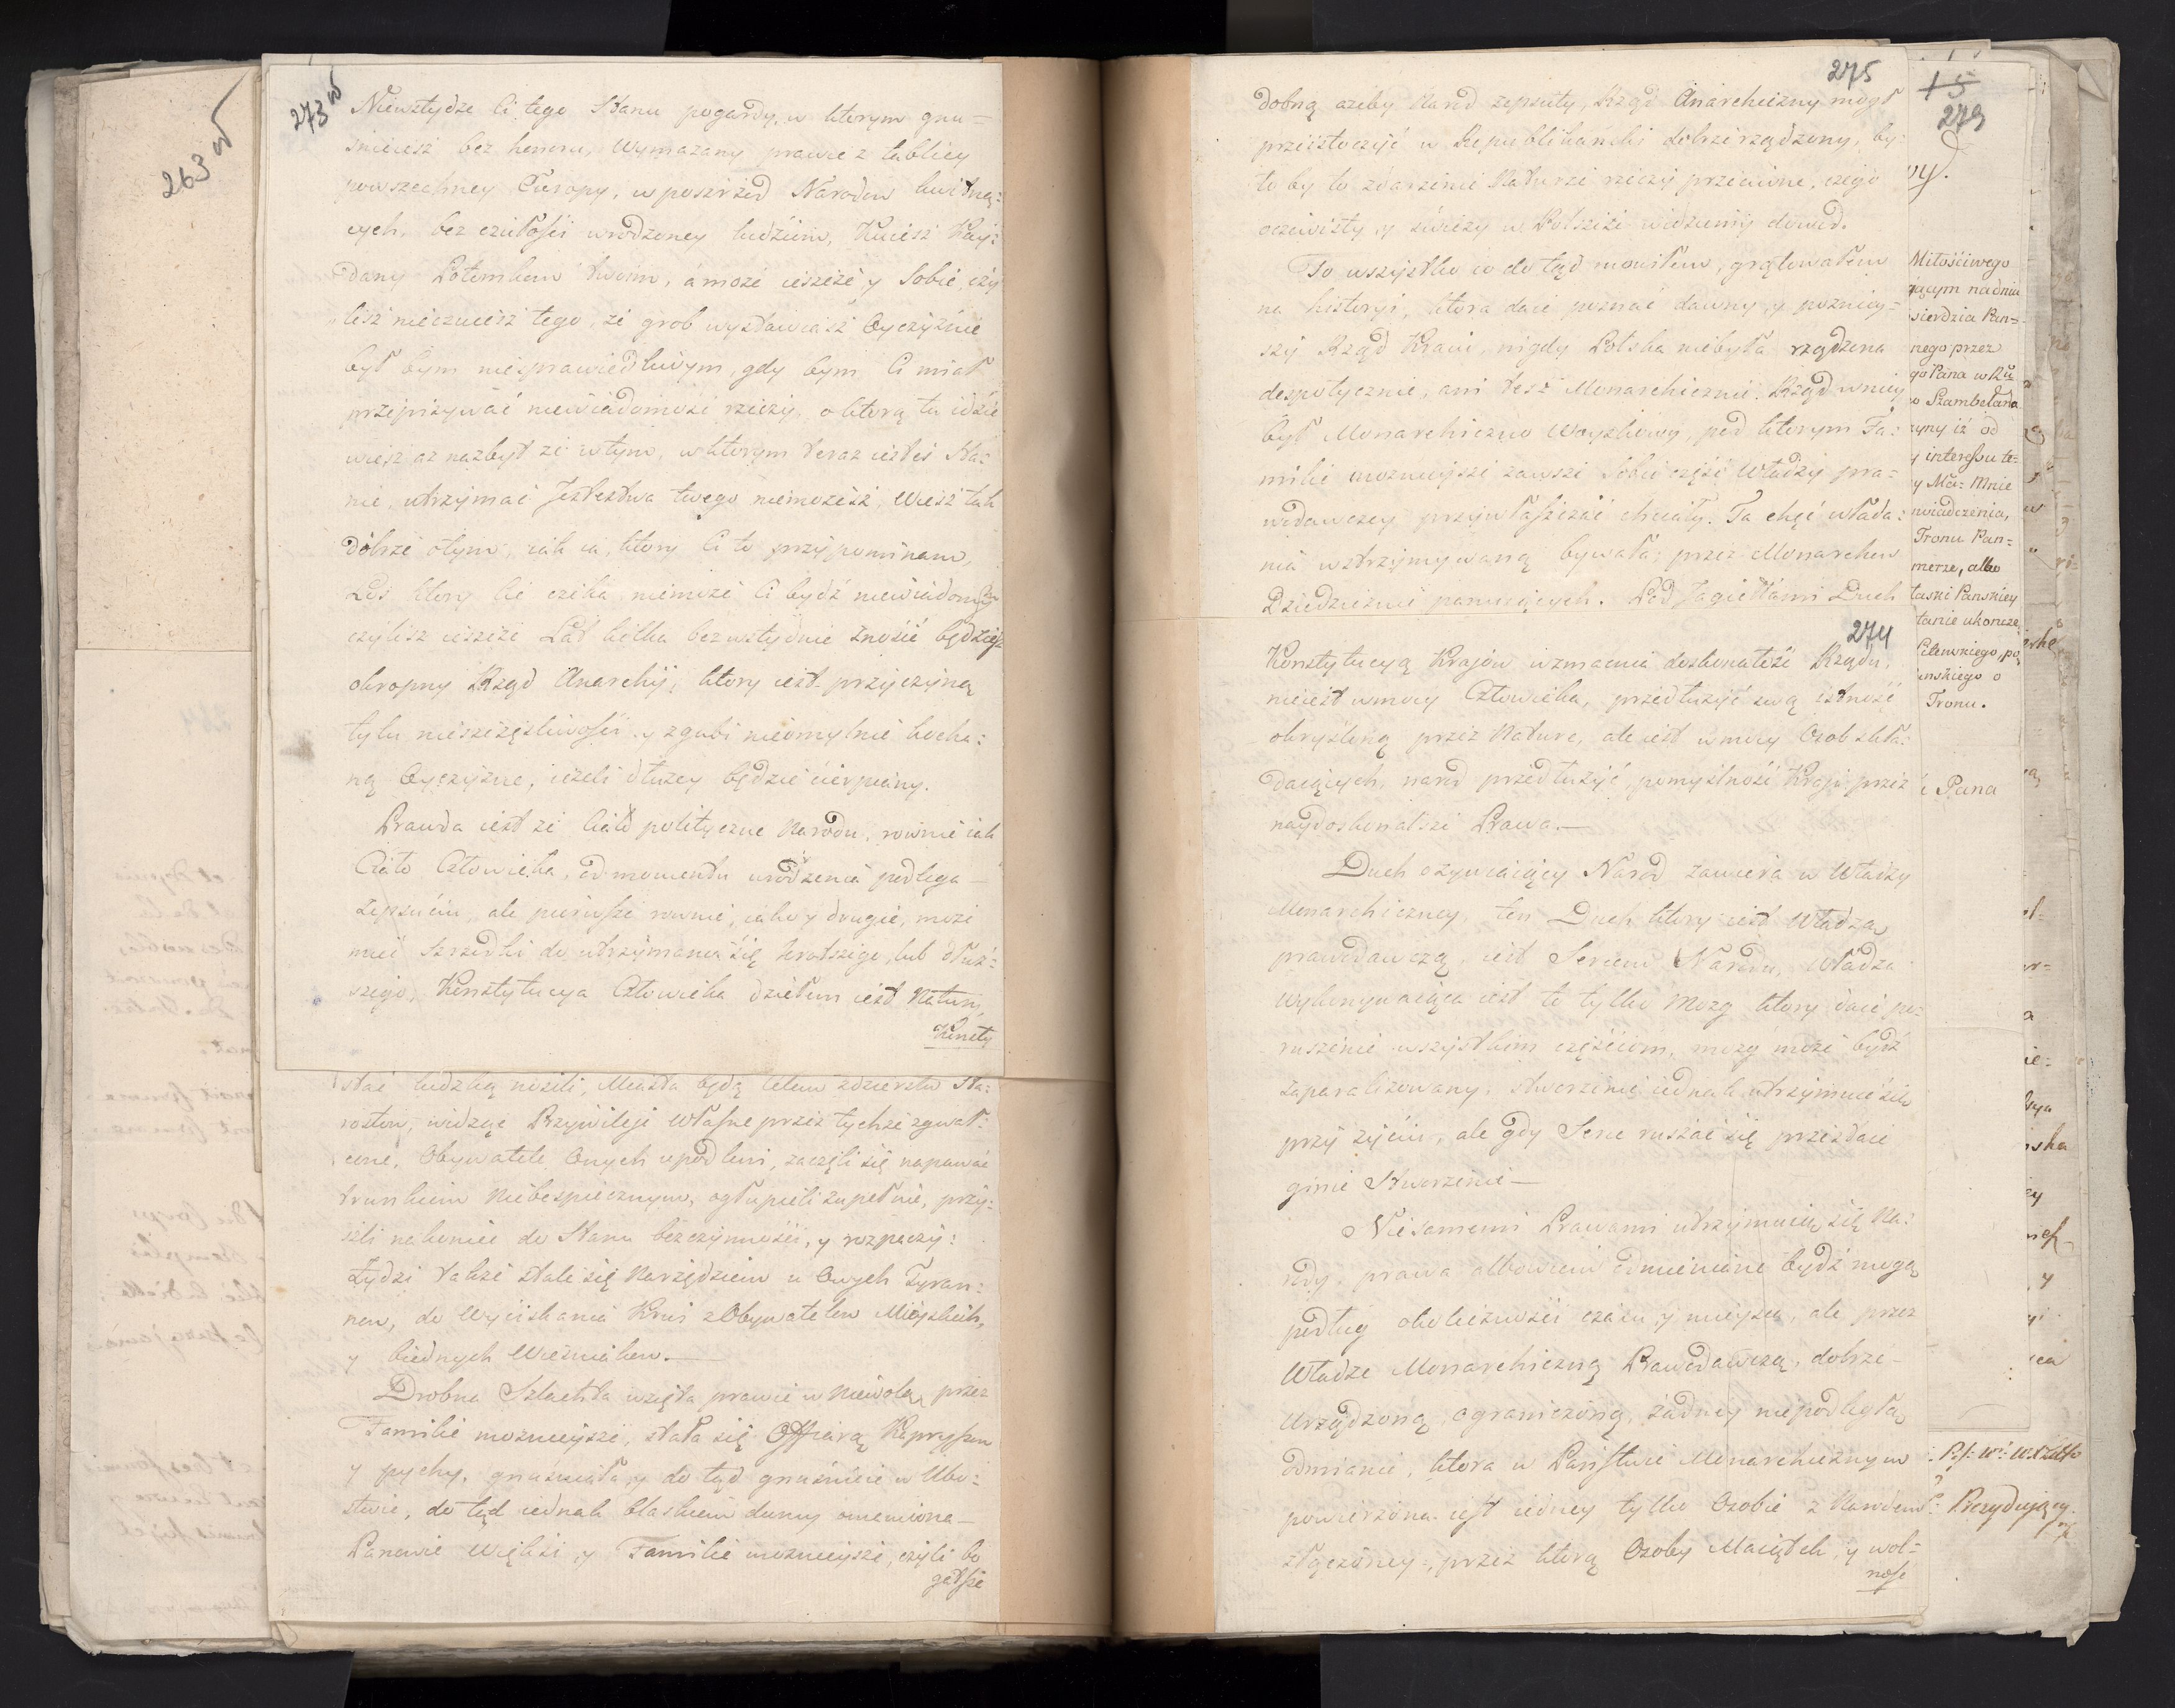 263 w
273 w
Niewstydze Ci tego Stanu pogardy, w ktorym gnu=
śnieiesz bez honoru, Wymazany prawie z tablicy
powszechney Europy, w poszrzod Narodow kwitną:
cych, bez czułości wrodzoney ludziom, Kuiesz Kay:
dany Potomkom twoim, a może ieszcze y Sobie, czy
lisz nieczuiesz tego, że grob wystawiasz Oyczyźnie
był bym niesprawiedliwym, gdy bym Ci miał
przypisywać niewiadomość rzeczy, o ktorą tu idzie
wiesz aż nazbyt że w tym, w ktorym teraz iesteś Sta:
nie, utrzymać Jestestwa twego niemożesz, Wiesz tak
dobrze o tym, iak ia, ktory Ci to przypominam,
Los ktory Cie czeka niemoże Ci bydź niewiadomy
czylisz ieszcze Lat kilka bezwstydnie znosić będziesz
okropny Rząd Anarchij, ktory iest przyczyną
tylu nieszczęśliwości y zgubi nieomylnie kocha:
ną Oyczyzne, ieżeli dłużey będzie cierpiany.
Prawda iest że Ciało polityczne Narodu, rownie iak
Ciało Człowieka, od momentu urodzenia podlega
zepsuciu, ale pierwsze rownie, iako y drugie, może
mieć szrzodki do utrzymania się krotszego, lub dłuż:
szego, Konstytucya Człowieka dziełem iest Natury,
Konsty
stać ludzką nosili, Miasta będą celem zdzierstw Sta:
rostow, widząc Przywileje własne przez tychże zgwał:
cone, Obywatele Onych upodleni, zaczęli się napawać
trunkiem Niebespiecznym, ogłupieli zupełnie, przy:
szli nakoniec do Stanu bezczynności, y rozpaczy:
Żydzi także stali się Narzędziem u Owych Tyran:
now, do Wyciskania Krwi z Obywatelow Mieyskich,
y biednych Wieśniakow.
Drobna Szlachta wzięta prawie w Niewolą przez
Familie możnieysze, stała się Offiarą Kapryssow
y pychy, gnuśniała, y do tąd gnuśnieie w Ubo:
stwie, do tąd iednak blaskiem dumy omamiona
Panowie Więksi, y Familie możnieysze, czyli bo
gatsze
275
dobną ażeby Narod zepsuty, Rząd Anarchiczny mogł
przeistoczyć w Republikanski dobrze rządzony, by:
ło by to zdarzenie Naturze rzeczy przeciwne, czego
oczewisty, y świeży w Polszcze widziemy dowod.
To wszystko co do tąd mowiłem, grątowałem
na historyi, ktora daie poznać dawny, y pozniey=
szy Rząd Kraiu, nigdy Polska niebyła rządzona
despotycznie, ani tesz Monarchicznie. Rząd w niey
był Monarchiczno Woyskowy, pod ktorym Fa:
milie możnieysze zawsze Sobie część Władzy pra=
wodawczey przywłaszczać chciały. Ta chęć włada:
nia wstrzymywaną bywała, przez Monarchow
Dziedzicznie panuiących. Pod Jagiełłami Duch
274
Konstytucyą Kraiow wzmacnia doskonałość Rządu,
nieiest w mocy Człowieka, przedłużyć swą istność
okryśloną przez Nature, ale iest w mocy Osob skła:
daiących, narod przedłużyć, pomyślność Kraju przez
naydoskonalsze Prawa.
Duch ożywiaiący Narod zawiera w Władzy
Monarchiczney, ten Duch ktory iest Władzą
prawodawczą, iest Sercem Narodu, władza
wykonywaiąca iest to tylko Mozg ktory daie po:
ruszenie wszystkim częściom, mozg może bydź
zaparaliżowany, stworzenie iednak utrzymuie się
przy życiu, ale gdy Serce ruszać się przestaie
ginie Stworzenie
Niesamemi Prawami utrzymuią się Na:
rody, prawa albowiem odmienione bydź mogą
podług okoliczności czasu, y mieysca, ale przez
Władze Monarchiczną Prawodawczą, dobrze
urządzoną, ograniczoną, żadney niepodległą
odmianie, ktora w Państwie Monarchicznym
powierzona iest iedney tylko Osobie z Narodem
złączoney, przez ktorą Osoby Maiątek, y wol=
ność
15
279
Miłościwego
zącym nadnia
sierdzia Pan=
nego przez
go Pana w Ru
o Szambelana
zyny iż od
y interessu te=
y Mci= Mnie
nwiadczenia,
Tronu Pan=
merze, albo
łaski Panskiey
tanie ukoncze
Cilewskiego, po
inskiego o
Tronu.
i Pana
Prezydujący